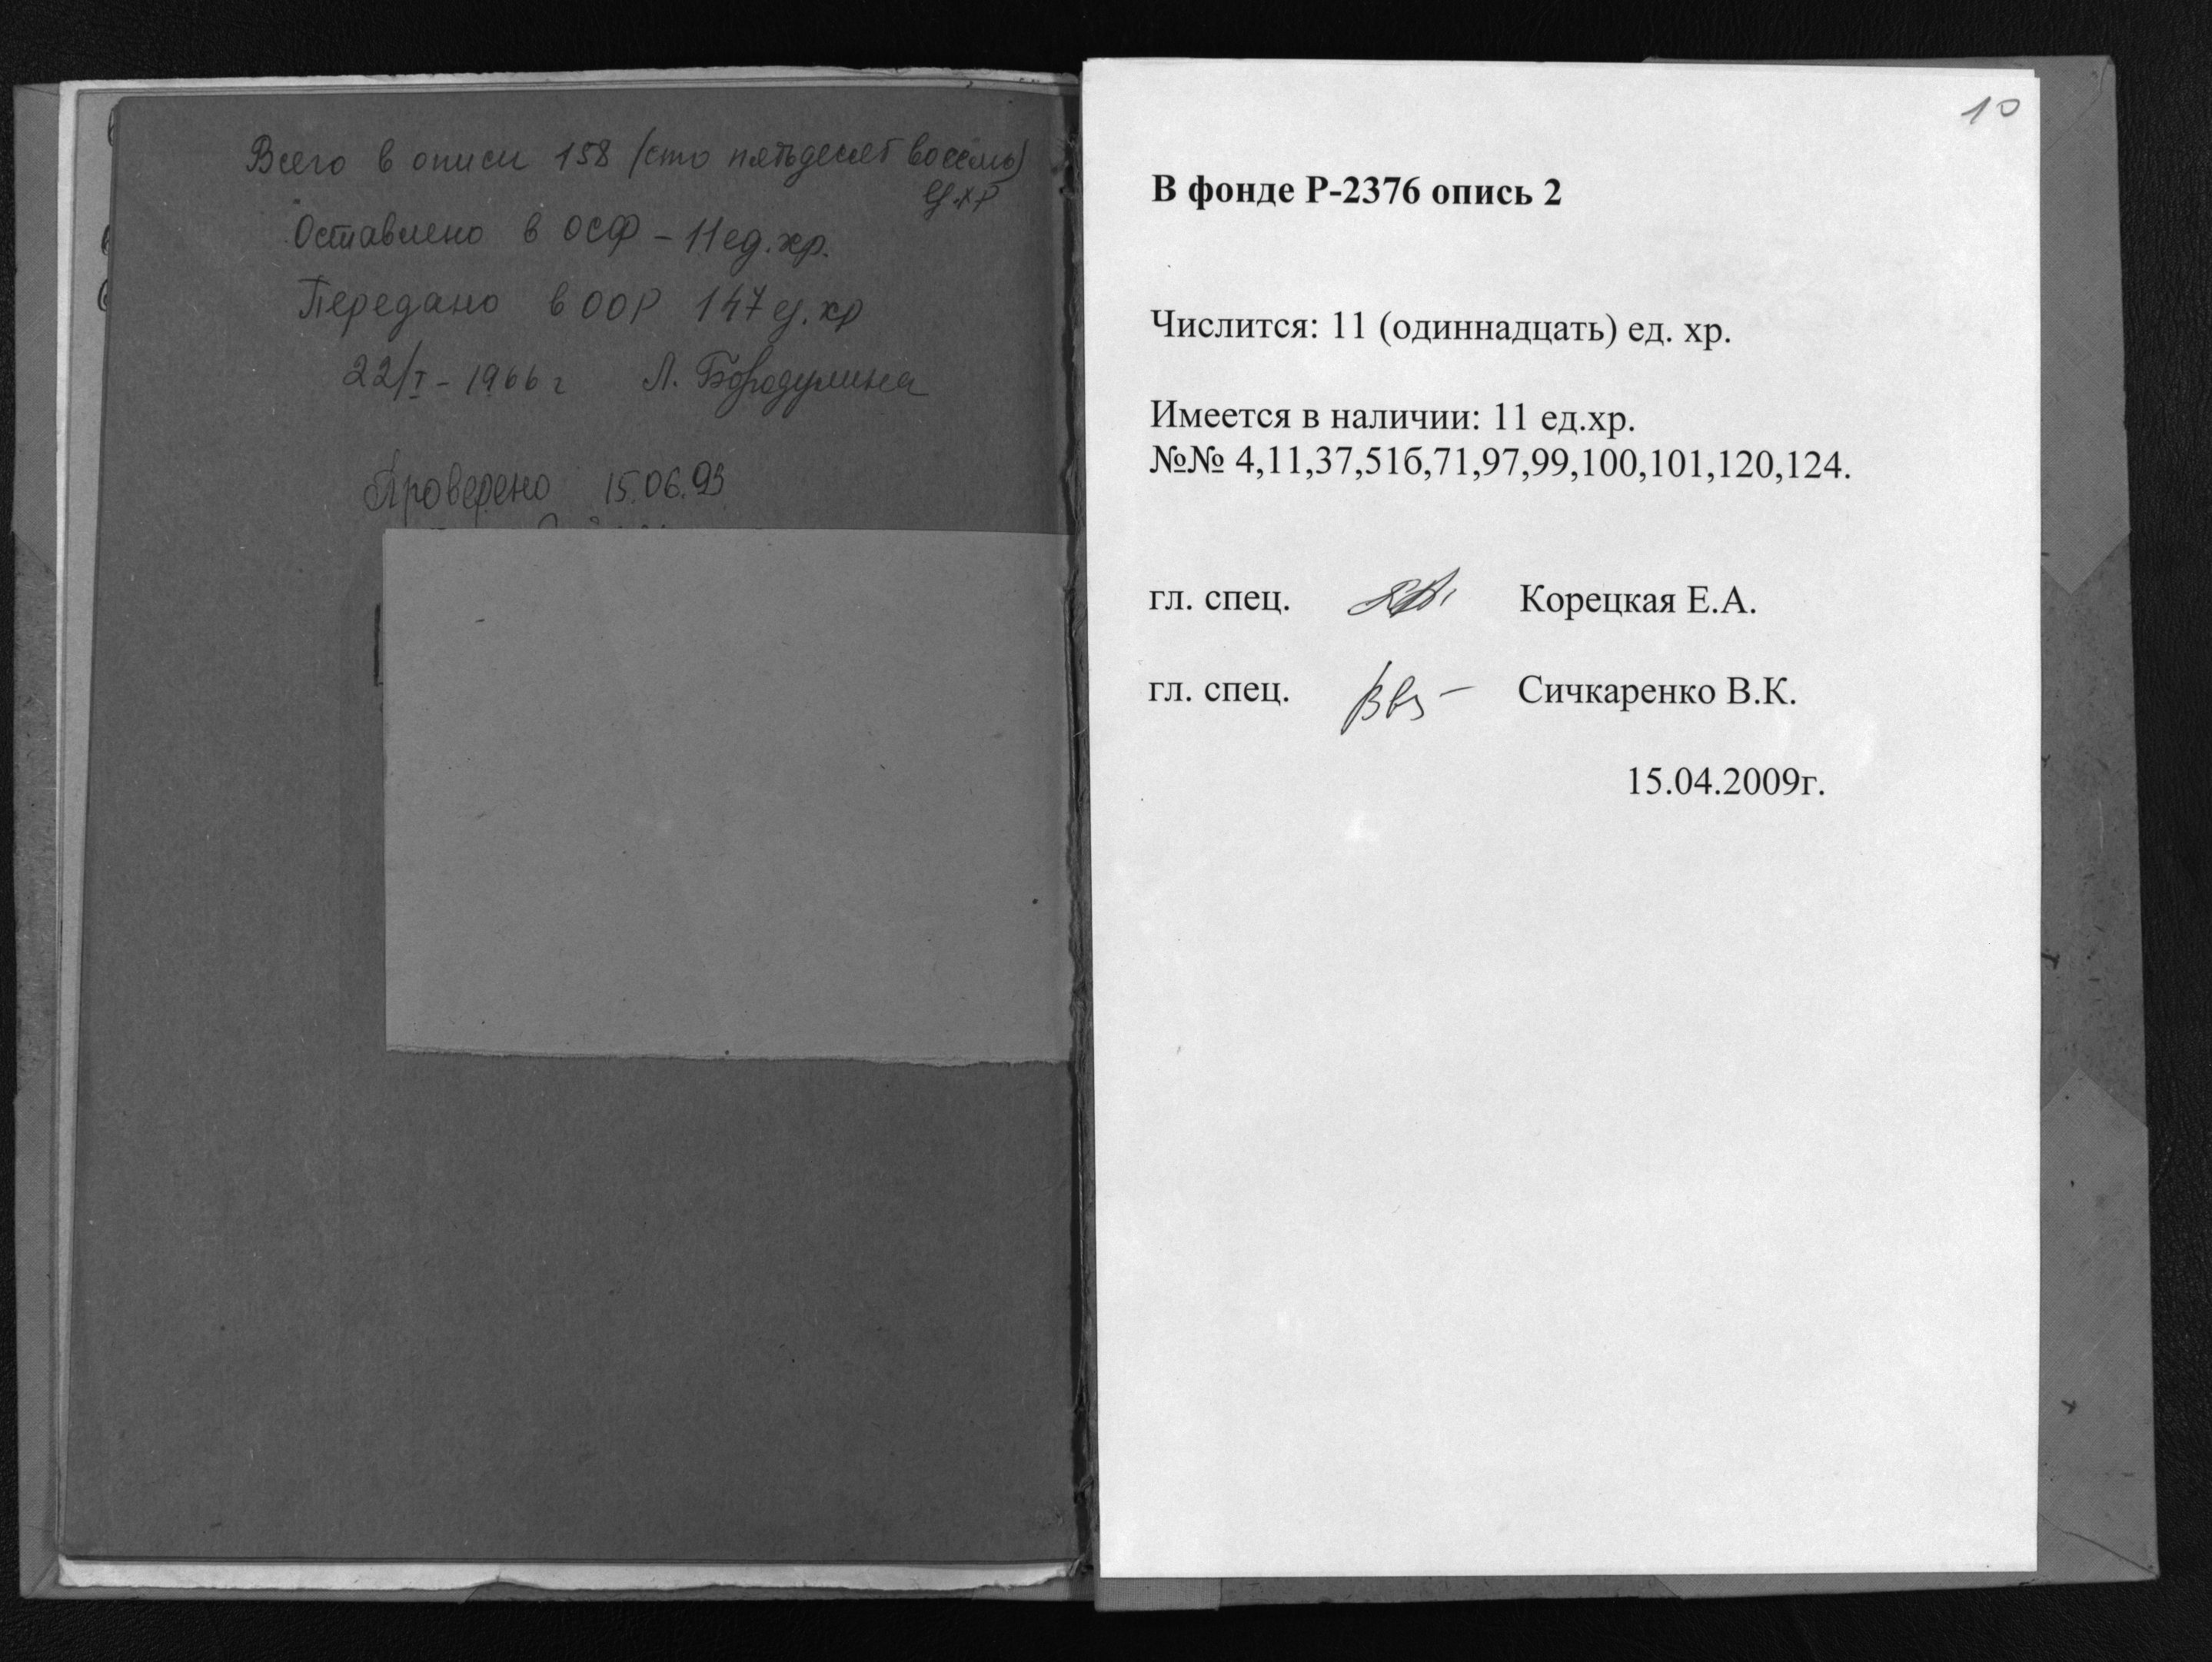 Всего в описи 158 (сто пятьдесят восемь)
ед.хр
Оставлено в ОСФ - 11 ед.хр.
Передано в ООР 147 ед.хр
22/I - 1966 г Л. Бородулина
Проверено 15.06.93
10
В фонде Р-2376 опись 2
Числится: 11 (одиннадцать) ед. хр.
Имеется в наличии: 11 ед.хр.
№№ 4,11,37,51б,71,97,99,100,101,120,124.
гл. спец. Корецкая Е.А.
гл. спец. Сичкаренко В.К.
15.04.2009г.